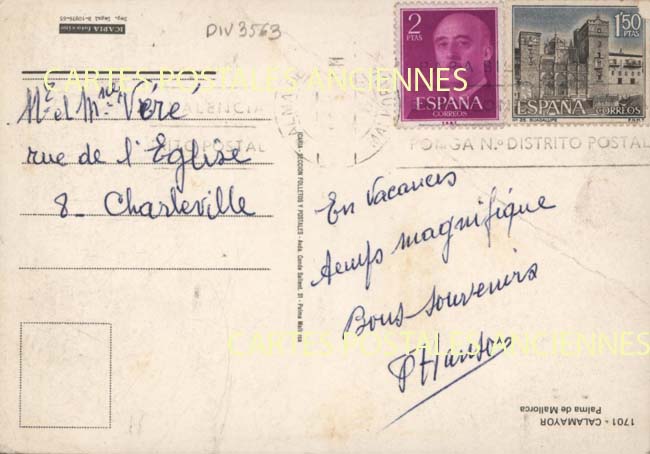 DIV 3563
ICARIA foto color
Dep. Legal B-10976-65
2
PTAS
ESPAÑA
CORREOS
1'50
PTAS
ESPAÑA
CORREOS
GUADALUPE
F.N.M.T.
CARTES POSTALES ANCIENNES
PONGA N.º DISTRITO POSTAL
Mr et Mme Véré
rue de l'Église
8 - Charleville
ICARIA - SECCION FOLLETOS Y POSTALES - Avda. Conde Sallent, 31 - Palma
En Vacances
temps magnifique
Bons souvenirs
CARTES POSTALES ANCIENNES
1701 - CALAMAYOR
Palma de Mallorca